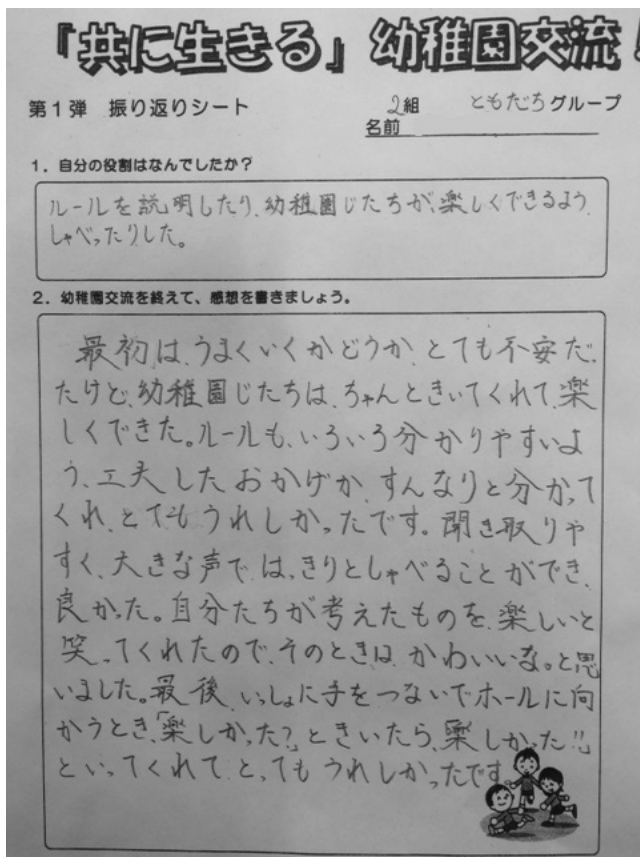 「共に生きる」幼稚園交流!
第1弾 振り返りシート
2組 ともだちグループ
名前
1.自分の役割はなんでしたか?
ルールを説明したり、幼稚園じたちが、楽しくできるよう、
しゃべったりした。
2.幼稚園交流を終えて、感想を書きましょう。
最初は、うまくいくかどうか、とても不安だっ
たけど、幼稚園じたちは、ちゃんときいてくれて、楽
しくできた。ルールも、いろいろ分かりやすいよ
う、工夫したおかげか、すんなりと分かって
くれ、とてもうれしかったです。聞き取りや
すく、大きな声で、はっきりとしゃべることができ、
良かった。自分たちが考えたものを、楽しいと
笑ってくれたので、そのときは、かわいいな。と思
いました。最後、いっしょに手をつないでホールに向
かうとき、「楽しかった?」ときいたら、「楽しかった!!」
といってくれて、とってもうれしかったです